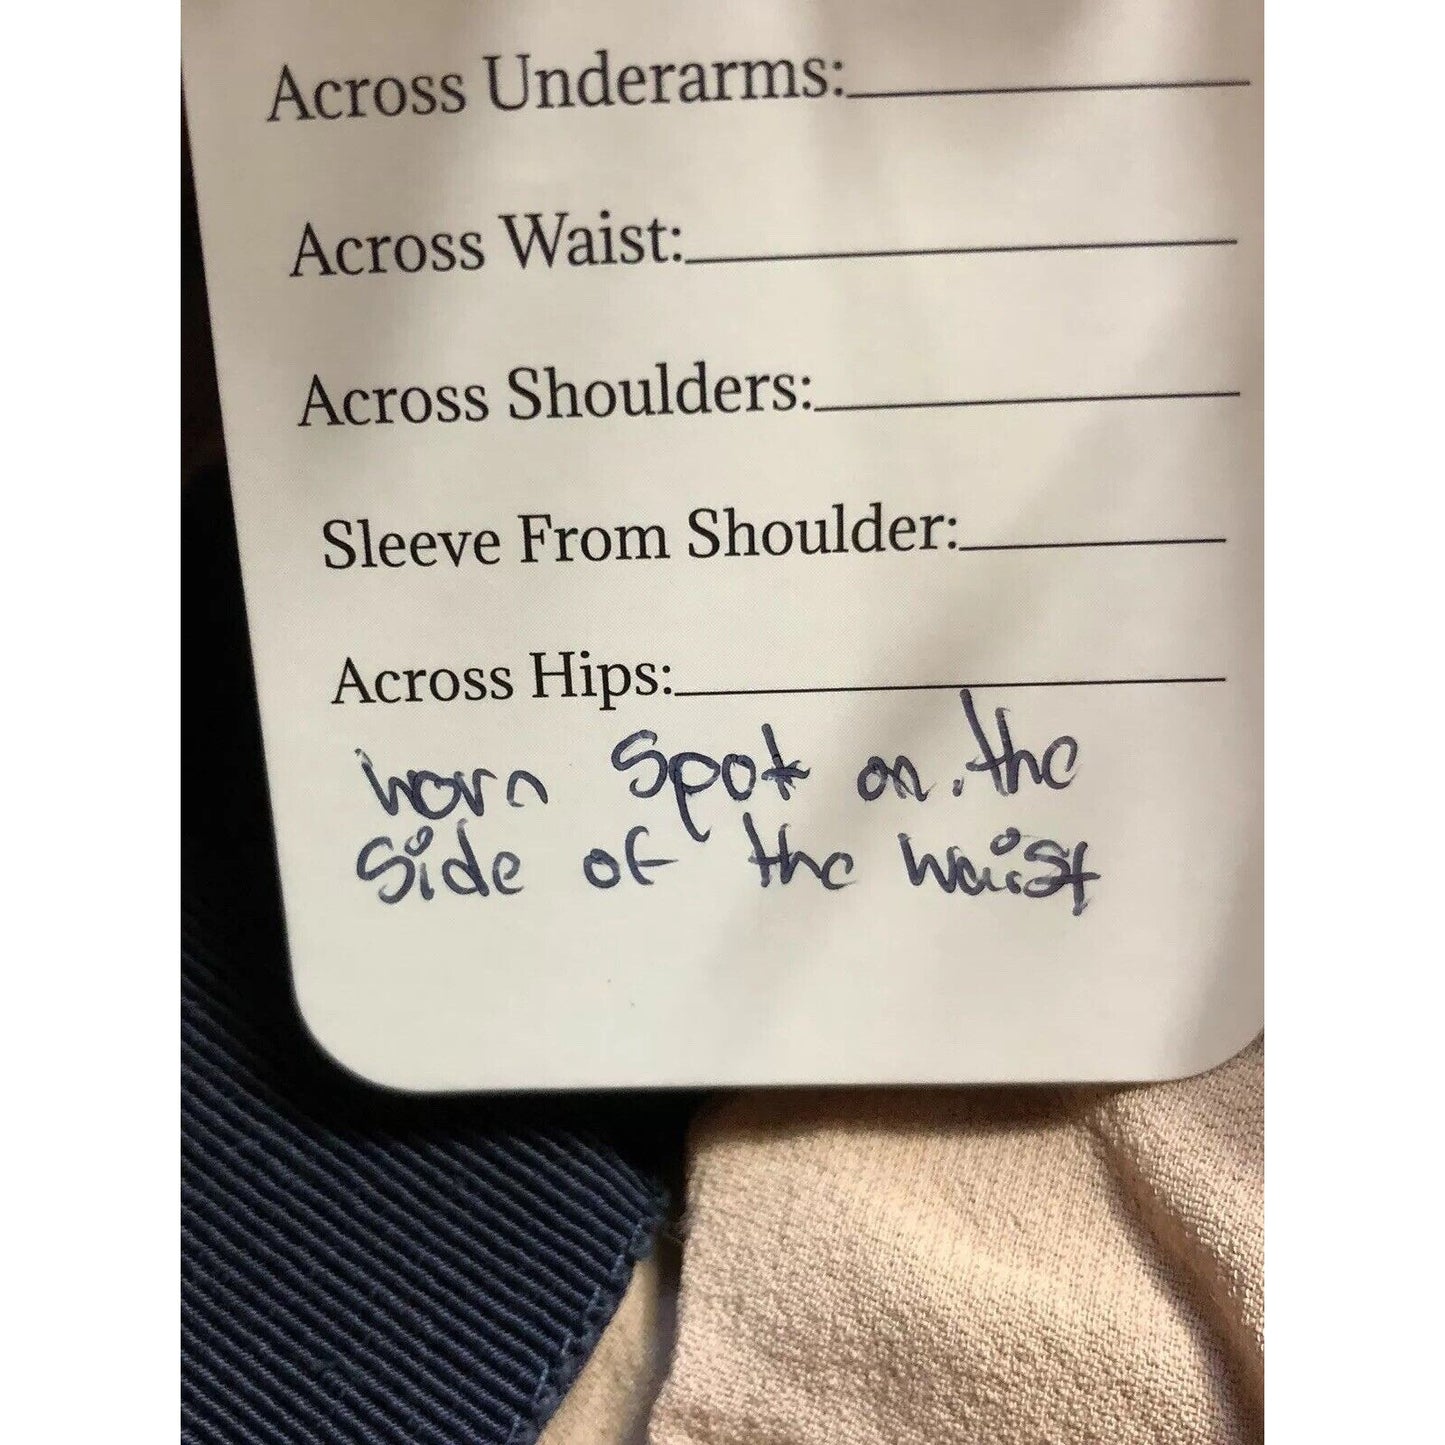 Across Underarms:
Across Waist:
Across Shoulders:
Sleeve From Shoulder:
Across Hips:
worn spot on the
side of the waist